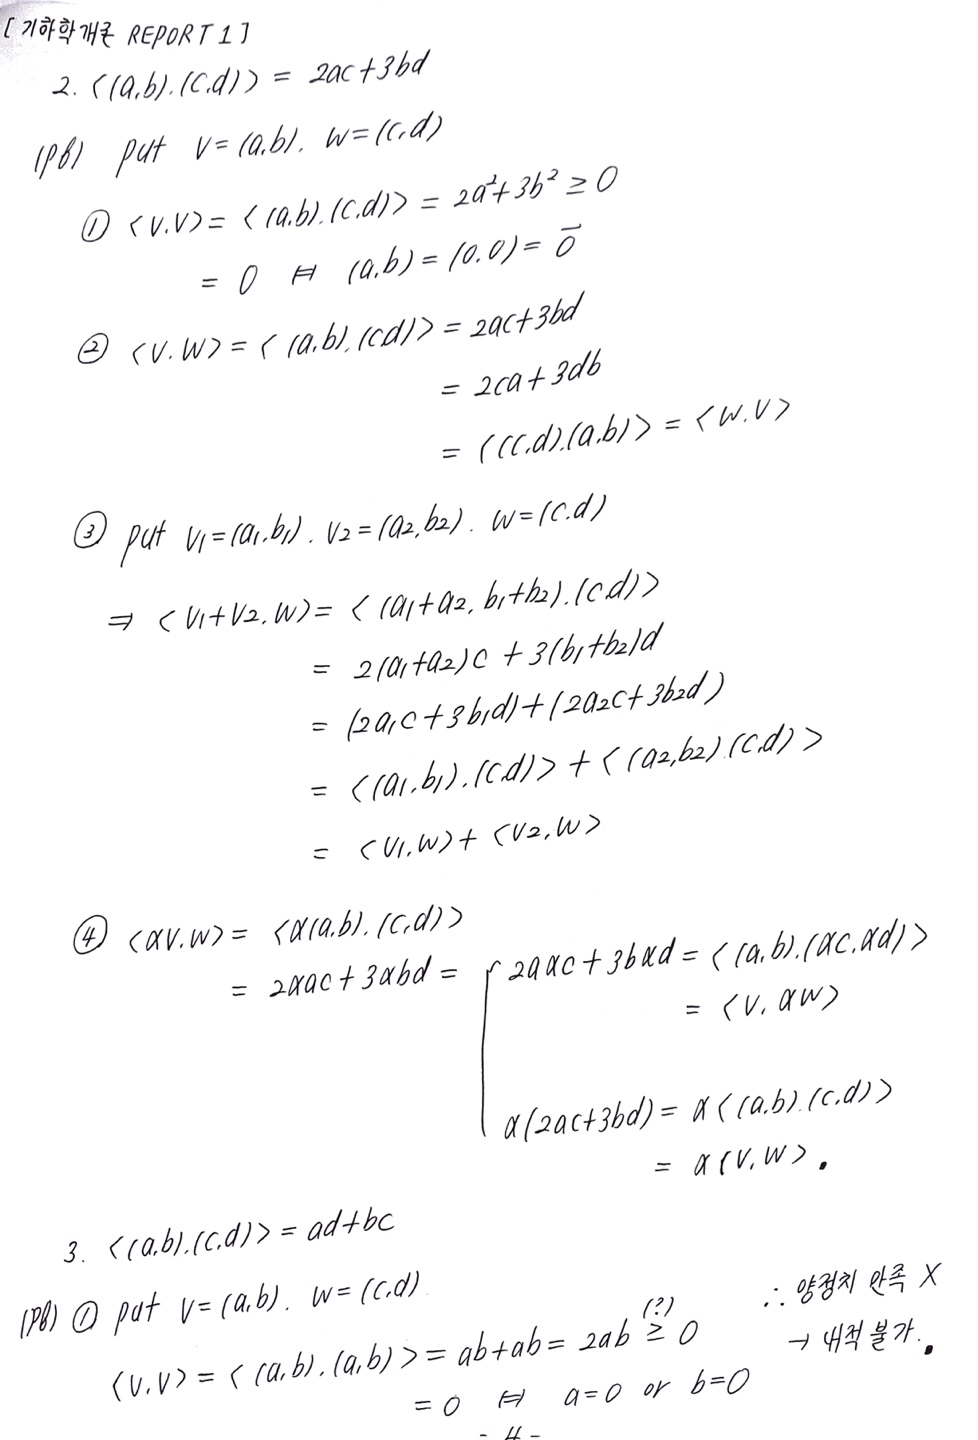 [기하학개론 REPORT 1]
2. <(a,b).(c,d)> = 2ac+3bd
(pf) put v=(a,b). w=(c,d)
① <v.v> = <(a,b).(c,d)> = 2a²+3b² ≥ 0
= 0 ⇔ (a,b)=(0.0)= \vec{0}
② <v.w> = <(a,b).(c,d)> = 2ac+3bd
= 2ca+3db
= <(c,d).(a,b)> = <w.v>
③ put v₁=(a₁,b₁). v₂=(a₂,b₂). w=(c,d)
⇒ <v₁+v₂.w> = <(a₁+a₂, b₁+b₂).(c,d)>
= 2(a₁+a₂)c + 3(b₁+b₂)d
= (2a₁c+3b₁d)+(2a₂c+3b₂d)
= <(a₁,b₁).(c,d)> + <(a₂,b₂).(c,d)>
= <v₁.w> + <v₂.w>
④ <αv.w> = <α(a,b).(c,d)>
= 2αac+3αbd = { 2aαc+3bαd = <(a,b).(αc.αd)>
= <v.αw>
α(2ac+3bd) = α<(a,b).(c,d)>
= α<v.w>.
3. <(a,b).(c,d)> = ad+bc
(pf) ① put v=(a,b). w=(c,d)
<v.v> = <(a,b).(a,b)> = ab+ab = 2ab ≥ 0 (?)
= 0 ⇔ a=0 or b=0
∴ 양정치 만족 X
→ 내적 불가.
- 4 -